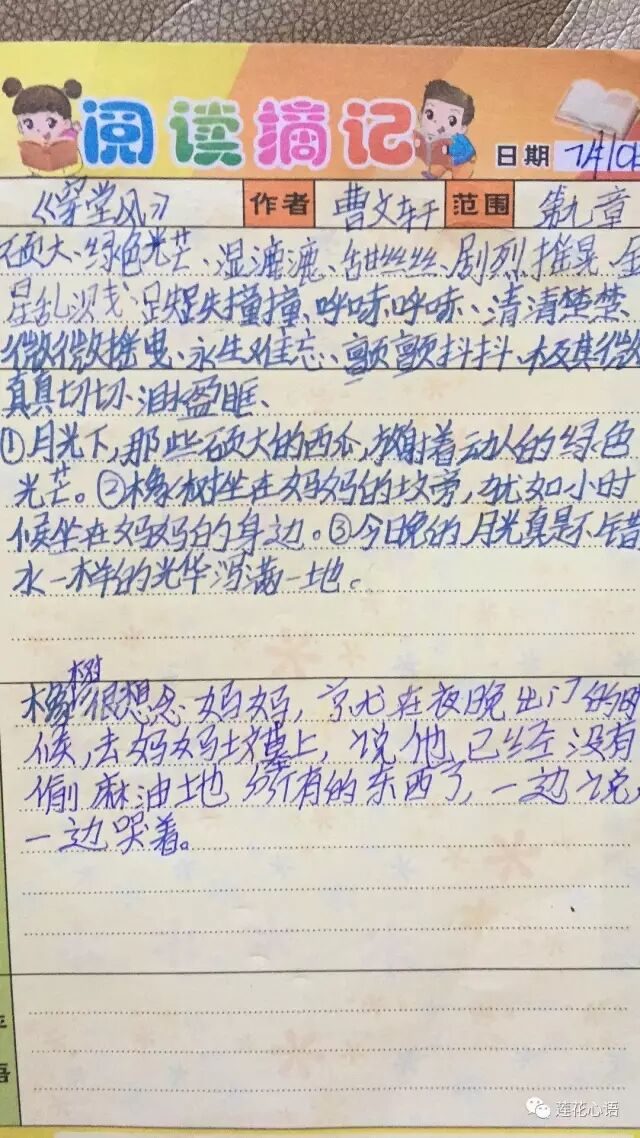 阅读摘记
日期 7月10日
《穿堂风》 作者 曹文轩 范围 第九章
硕大、绿色光芒、湿漉漉、甜丝丝、剧烈摇晃、金
星乱溅、跌跌撞撞、呼哧呼哧、清清楚楚、
微微摇曳、永生难忘、颤颤抖抖、极其微
真真切切、泪水盈眶、
①月光下,那些硕大的西瓜,放射着动人的绿色
光芒。②橡树坐在妈妈的坟旁,犹如小时
候坐在妈妈的身边。③今日晚的月光真是不错
水一样的光华泻满一地。
橡树很想念妈妈,就在夜晚出门的时
候,去妈妈坟墓上,说他已经没有
偷麻油地所有的东西了,一边说,
一边哭着。
莲花心语